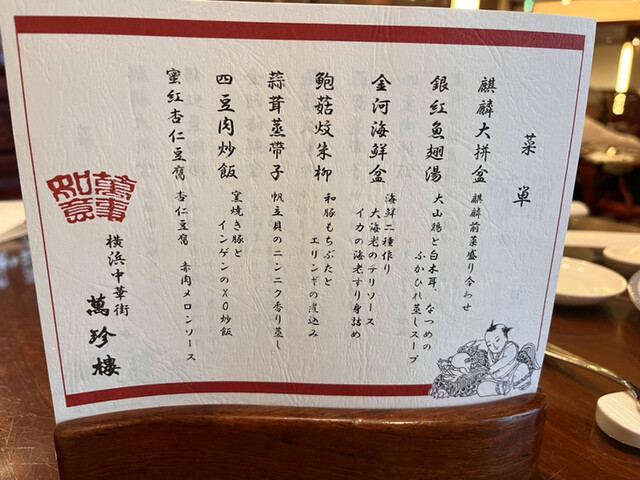 菜単
麒麟大拼盆
麒麟前菜盛り合わせ
銀紅魚翅湯
大山鶏と白木耳、なつめの
ふかひれ蒸しスープ
金河海鮮盆
海鮮二種作り
大海老のテリソース
イカの海老すり身詰め
鮑菇炆朱柳
和豚もちぶたと
エリンギの煮込み
蒜茸蒸帶子
帆立貝のニンニク香り蒸し
四豆肉炒飯
窯焼き豚と
インゲンのXO炒飯
蜜紅杏仁豆腐
杏仁豆腐 赤肉メロンソース
萬事如意
横浜中華街
萬珍樓